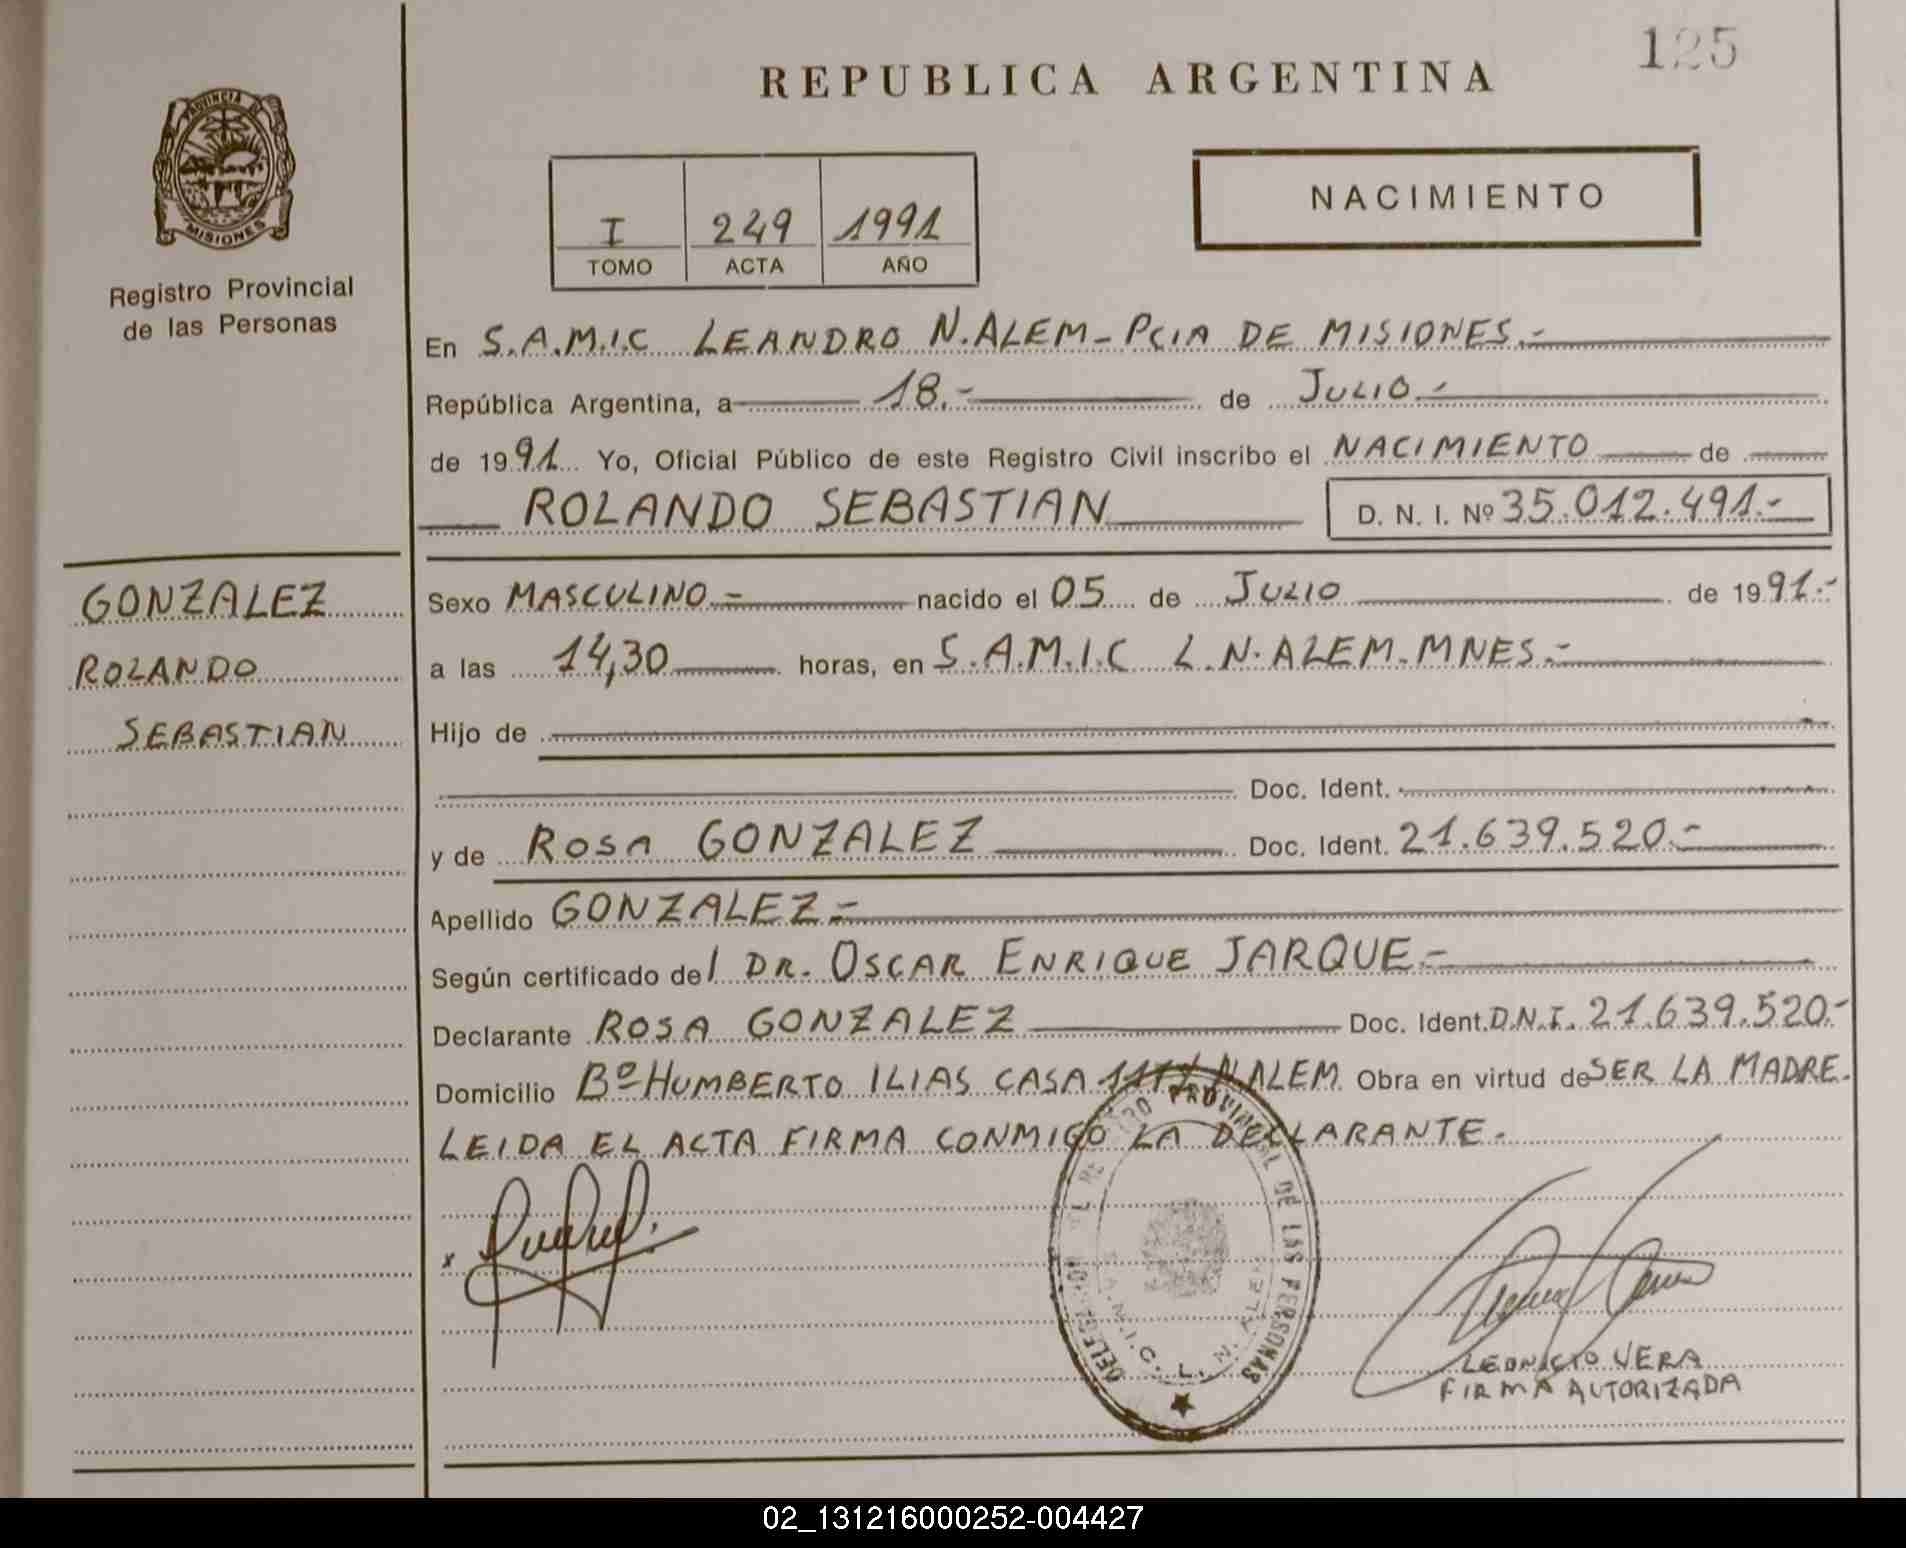 125
REPUBLICA ARGENTINA
PROVINCIA DE
MISIONES
Registro Provincial
de las Personas
I 249 1991
TOMO ACTA AÑO
NACIMIENTO
En S.A.M.I.C LEANDRO N. ALEM - PCIA DE MISIONES.-
República Argentina, a 18.- de JULIO.-
de 1991 Yo, Oficial Público de este Registro Civil inscribo el NACIMIENTO de
ROLANDO SEBASTIAN D. N. I. Nº 35.012.491.-
GONZALEZ
ROLANDO
SEBASTIAN
Sexo MASCULINO.- nacido el 05 de JULIO de 1991.-
a las 14,30 horas, en S.A.M.I.C L.N. ALEM. MNES.-
Hijo de
Doc. Ident.
y de ROSA GONZALEZ Doc. Ident. 21.639.520.-
Apellido GONZALEZ.-
Según certificado del DR. OSCAR ENRIQUE JARQUE.-
Declarante ROSA GONZALEZ Doc. Ident. D.N.I. 21.639.520.-
Domicilio Bº HUMBERTO ILIAS CASA N ALEM Obra en virtud de SER LA MADRE.
LEIDA EL ACTA FIRMA CONMIGO LA DECLARANTE.
PROVINCIAL DE LAS PERSONAS
S.A.M.I.C. L. N. ALEM
LEONICIO VERA
FIRMA AUTORIZADA
02_131216000252-004427